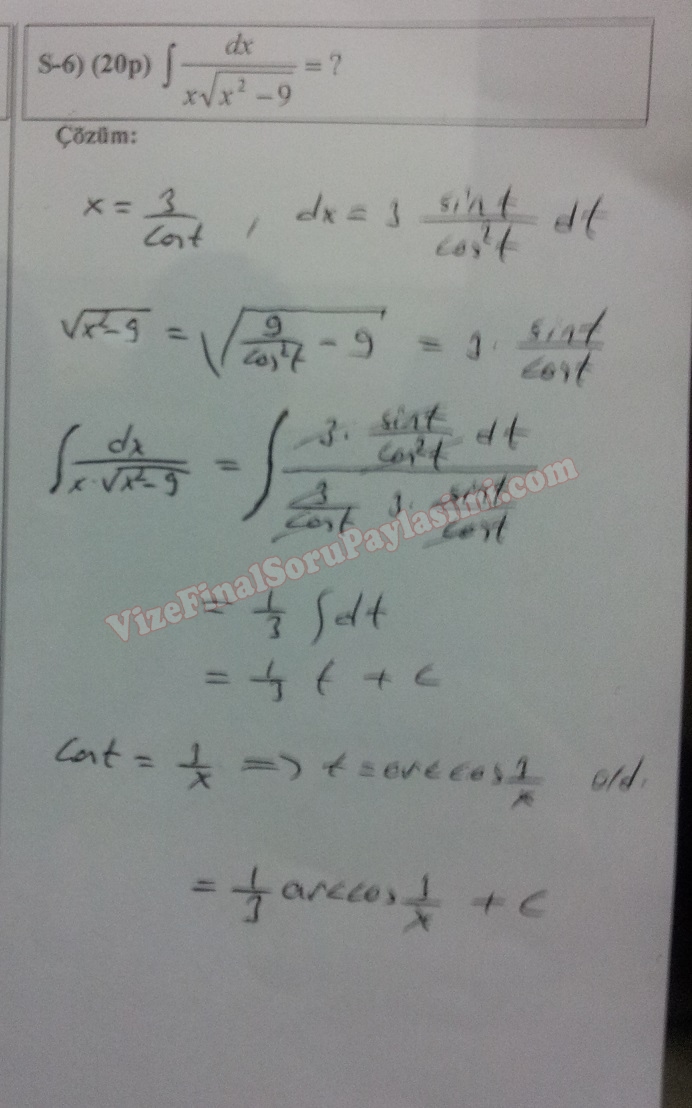 S-6) (20p) ∫ dx / (x√(x² − 9)) = ?
Çözüm:
x = 3/cost , dx = 3 sint/cos²t dt
√(x²−9) = √(9/cos²t − 9) = 3 · sint/cost
∫ dx / (x·√(x²−9)) = ∫ (3 · sint/cos²t dt) / (3/cost 3 · sint/cost)
VizeFinalSoruPaylasimi.com
= 1/3 ∫ dt
= 1/3 t + c
Cost = 1/x => t = arccos 1/x old.
= 1/3 arccos 1/x + c